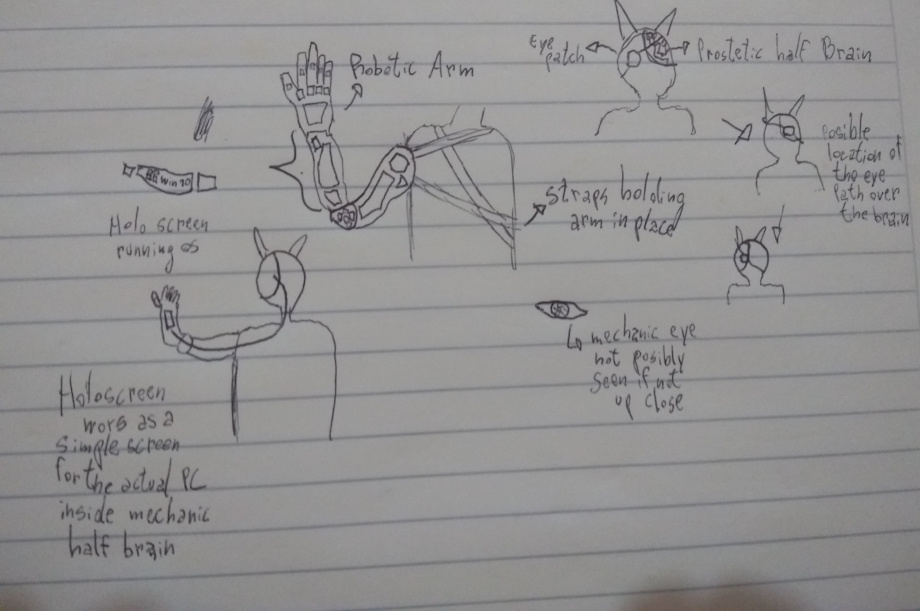 Eye
patch
Prostetic half Brain
Robotic Arm
Posible
location of
the eye
Path over
the brain
win 10
straps holding
arm in place
Holo screen
running os
mechanic eye
not posibly
seen if not
up close
Holoscreen
wors as a
simple screen
for the actual PC
inside mechanic
half brain